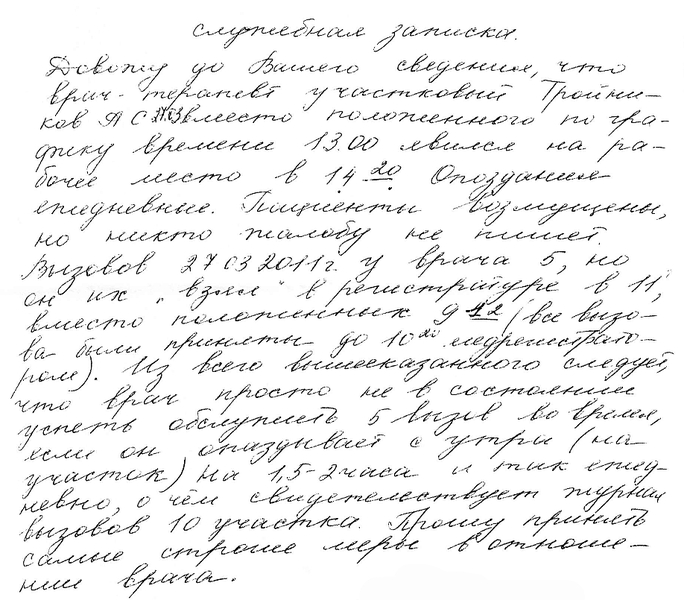 служебная записка.
Довожу до Вашего сведения, что
врач-терапевт участковый Тройни-
ков А С вместо положенного по гра-
фику времени 13.00 явился на ра-
бочее место в 14 20 Опоздания
ежедневные. Пациенты возмущены,
но никто жалобу не пишет.
Вызовов 27 03 2011г. у врача 5, но
он их „взял" в регистратуре в 11,
вместо положенных 9 (все вызо-
ва были приняты до 10 20 медрегистрато-
ром). Из всего вышесказанного следует,
что врач просто не в состоянии
успеть обслужить 5 вызов во время,
если он опаздывает с утра (на
участок) на 1,5-2 часа и так ежед-
невно, о чём свидетельствует журнал
вызовов 10 участка. Прошу принять
самые строгие меры в отноше-
нии врача.